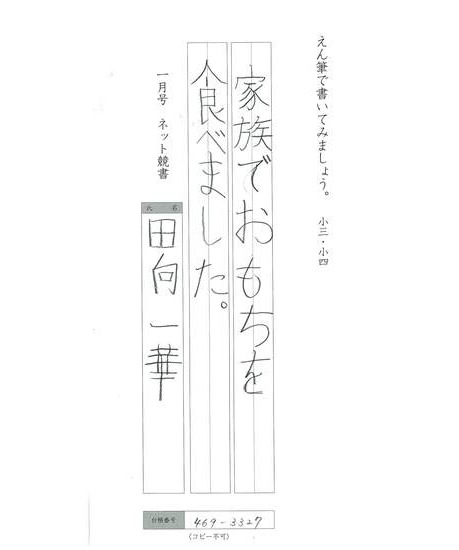 えん筆で書いてみましょう。 小三・小四
家族でおもちを
食べました。
一月号 ネット競書
氏 名
田向一華
合格番号 469-3327
(コピー不可)